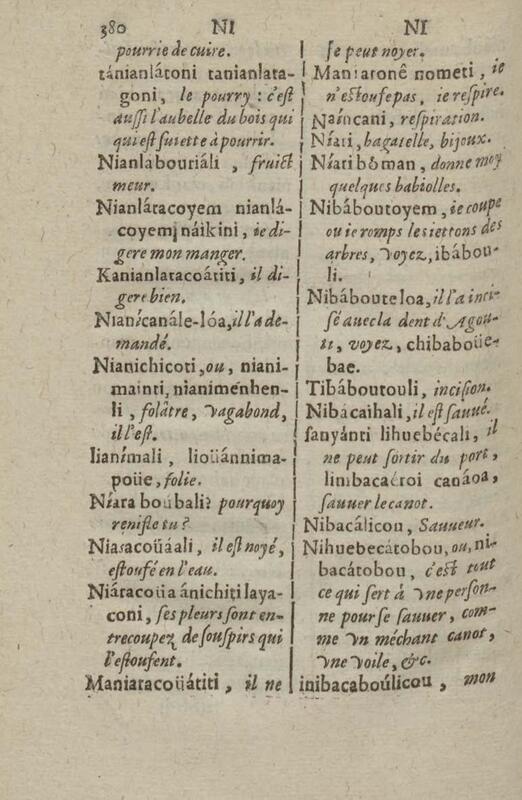 380 NI NI
pourrie de cuire.
tánianlátoni tanianlata-
goni, le pourry : c'est
aussi l'aubelle du bois qui
qui est suiette à pourrir.
Nianlabouriáli , fruict
meur.
Nianláracoyem nianlá-
coyem; náikini, ie di-
gere mon manger.
Kanianlatacoátiti, il di-
gere bien.
Nianícanále-lóa, il l'a de-
mandé.
Nianichicoti, ou, niani-
mainti, nianimenhen-
li , folâtre, vagabond,
il l'est.
lianímali , lioüánnima-
poüe, folie.
Níara boúbali? pourquoy
renifle tu ?
Niasacoüáali, il est noyé,
estoufé en l'eau.
Niáracoüa ánichiti laya-
coni, ses pleurs sont en-
trecoupez de souspirs qui
l'estoufent.
Maniaracoüátiti , il ne
se peut noyer.
Maniaronê nometi , ie
n'estoufe pas, ie respire.
Naíncani, respiration.
Níati, bagatelle, bijoux.
Níati bôman, donne moy
quelques babiolles.
Nibáboutoyem, ie coupe
ou ie romps les iettons des
arbres, voyez, ibábou-
li.
Nibáboute loa, il l'a inci-
sé auec la dent d'Agou-
ti, voyez, chibaboüe-
bae.
Tibáboutouli, incision.
Nibácaihali, il est sauué.
sanyánti lihuebécali, il
ne peut sortir du port,
limbacaéroi canáoa,
sauuer le canot.
Nibacálicou, Sauueur.
Nihuebecátobou, ou, ni-
bacátobou, c'est tout
ce qui sert à vne person-
ne pour se sauuer, com-
me vn méchant canot,
vne voile, &c.
inibacaboúlicou, mon